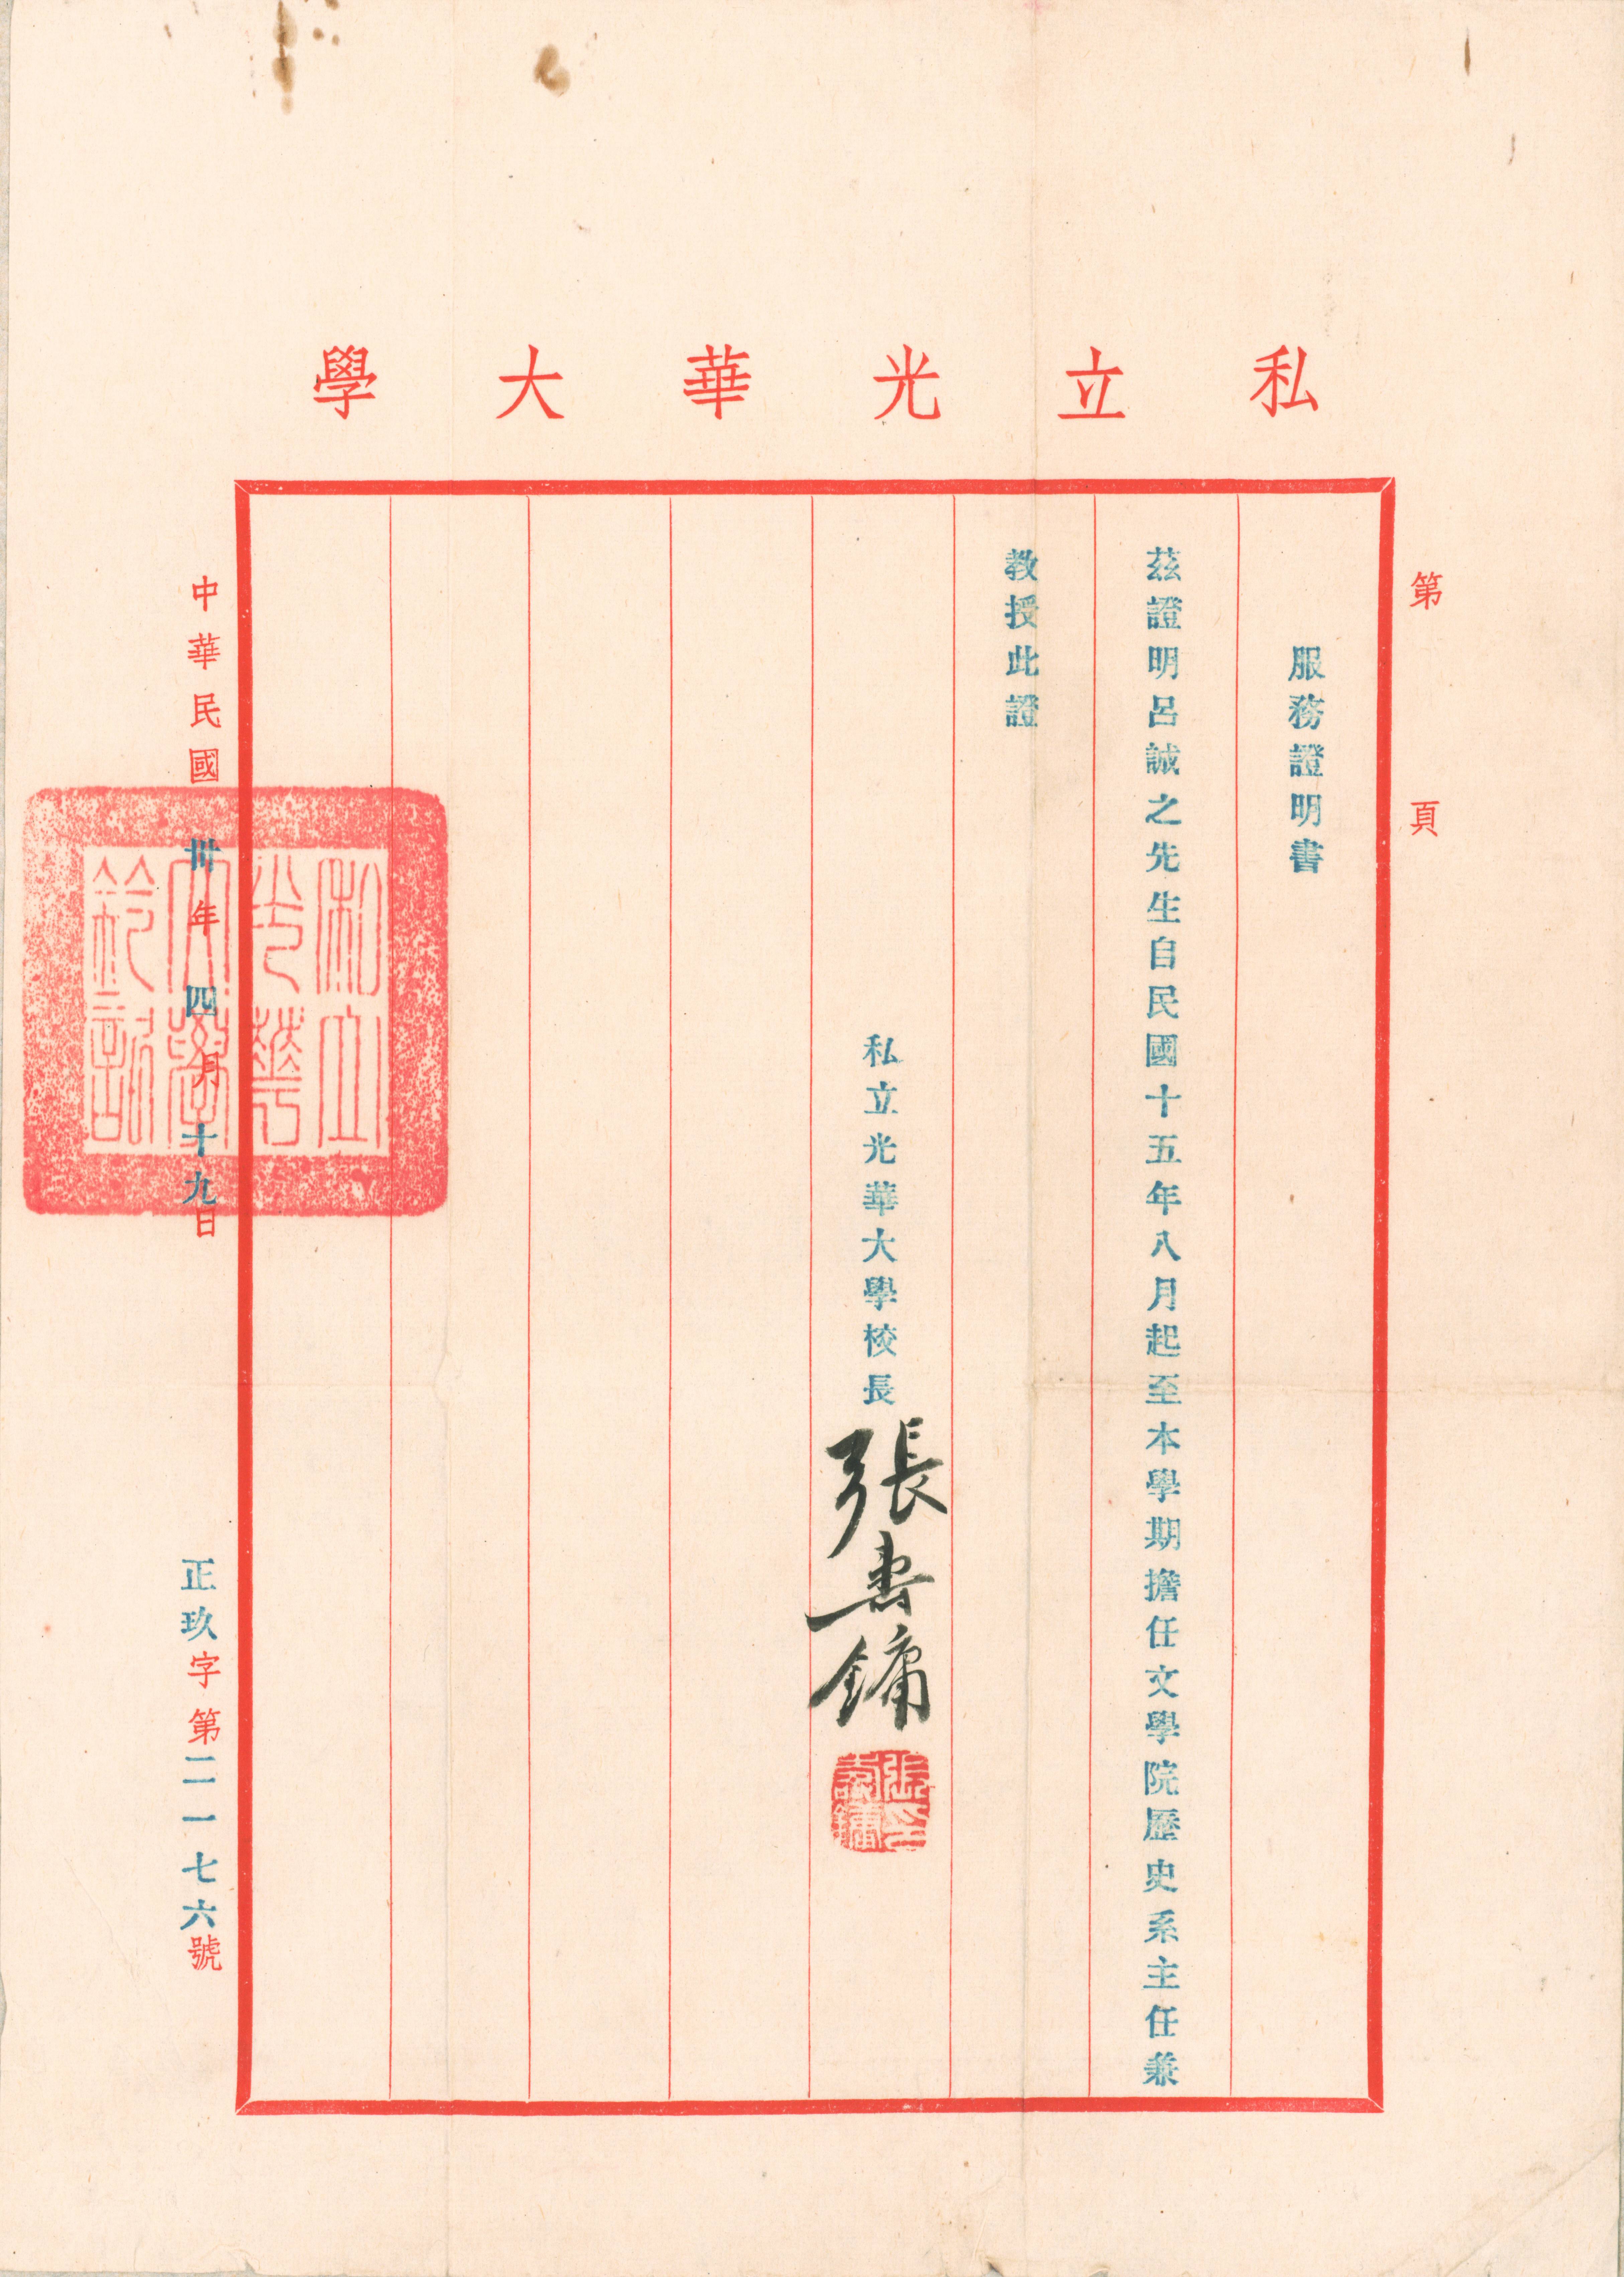 私立光華大學
第 頁
服務證明書
茲證明呂誠之先生自民國十五年八月起至本學期擔任文學院歷史系主任兼
教授此證
私立光華大學校長
張壽鏞
張壽鏞印
私立光華大學鈐記
中華民國卅年四月十九日
正玖字第二一七六號